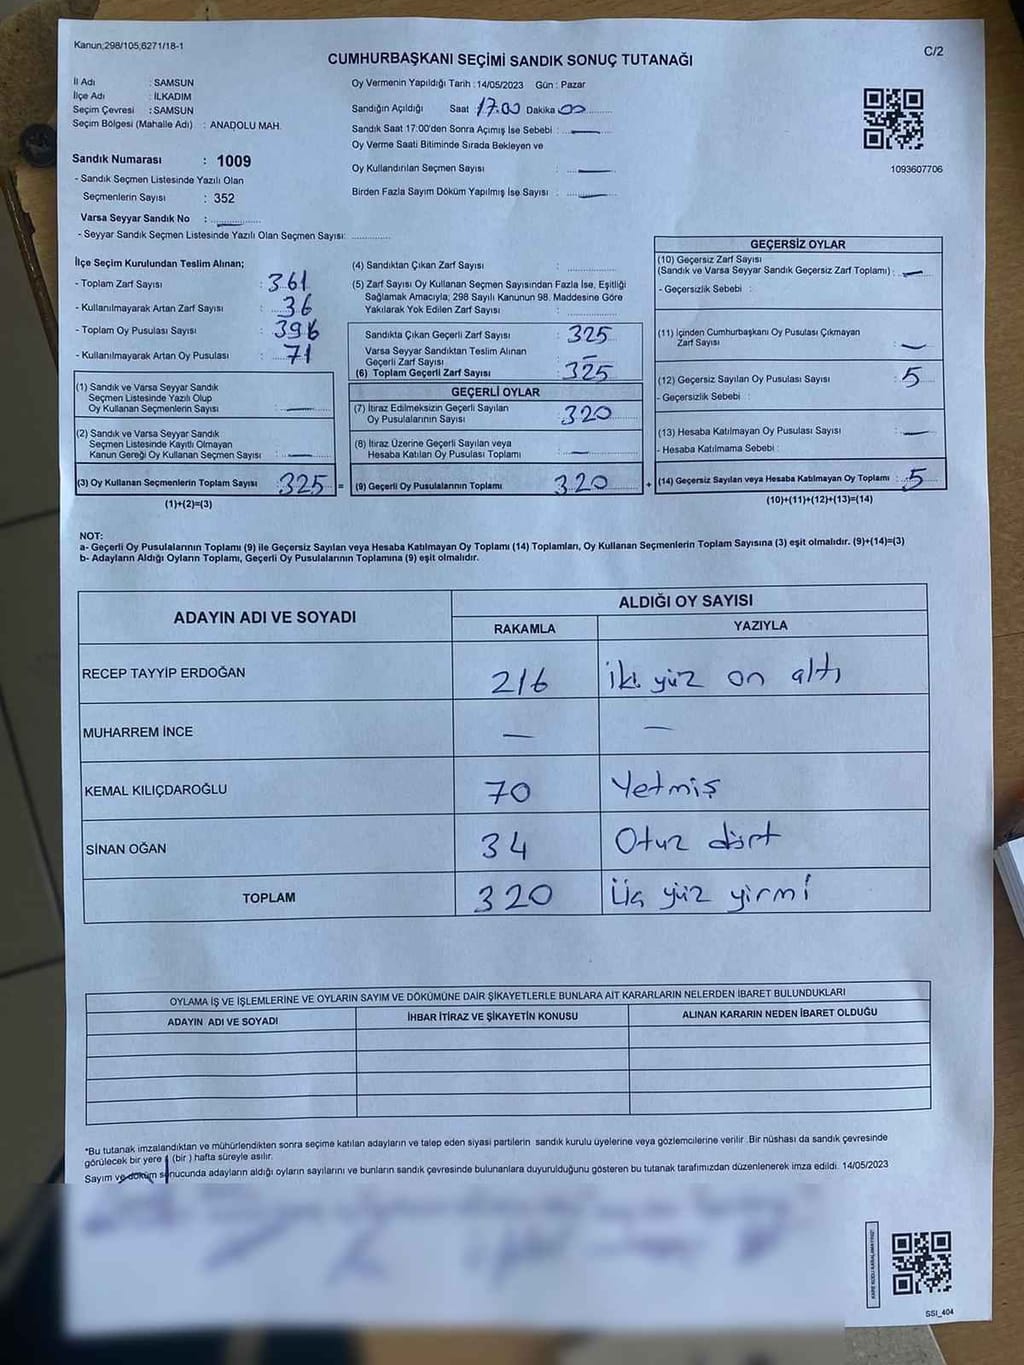 Kanun;298/105;6271/18-1
C/2
CUMHURBAŞKANI SEÇİMİ SANDIK SONUÇ TUTANAĞI
İl Adı : SAMSUN
İlçe Adı : İLKADIM
Seçim Çevresi : SAMSUN
Seçim Bölgesi (Mahalle Adı) : ANADOLU MAH.
Oy Vermenin Yapıldığı Tarih : 14/05/2023 Gün : Pazar
Sandığın Açıldığı Saat 17.00 Dakika 00
Sandık Saat 17:00'den Sonra Açımış İse Sebebi : —
Oy Verme Saati Bitiminde Sırada Bekleyen ve
Oy Kullandırılan Seçmen Sayısı : —
Birden Fazla Sayım Döküm Yapılmış İse Sayısı : —
1093607706
Sandık Numarası : 1009
- Sandık Seçmen Listesinde Yazılı Olan
Seçmenlerin Sayısı : 352
Varsa Seyyar Sandık No : —
- Seyyar Sandık Seçmen Listesinde Yazılı Olan Seçmen Sayısı:
İlçe Seçim Kurulundan Teslim Alınan;
- Toplam Zarf Sayısı : 361
- Kullanılmayarak Artan Zarf Sayısı : 36
- Toplam Oy Pusulası Sayısı : 396
- Kullanılmayarak Artan Oy Pusulası : 71
(1) Sandık ve Varsa Seyyar Sandık
Seçmen Listesinde Yazılı Olup
Oy Kullanan Seçmenlerin Sayısı : —
(2) Sandık ve Varsa Seyyar Sandık
Seçmen Listesinde Kayıtlı Olmayan
Kanun Gereği Oy Kullanan Seçmen Sayısı : —
(3) Oy Kullanan Seçmenlerin Toplam Sayısı : 325 =
(1)+(2)=(3)
(4) Sandıktan Çıkan Zarf Sayısı :
(5) Zarf Sayısı Oy Kullanan Seçmen Sayısından Fazla İse, Eşitliği
Sağlamak Amacıyla; 298 Sayılı Kanunun 98. Maddesine Göre
Yakılarak Yok Edilen Zarf Sayısı :
Sandıkta Çıkan Geçerli Zarf Sayısı : 325
Varsa Seyyar Sandıktan Teslim Alınan
Geçerli Zarf Sayısı : —
(6) Toplam Geçerli Zarf Sayısı : 325
GEÇERLİ OYLAR
(7) İtiraz Edilmeksizin Geçerli Sayılan
Oy Pusulalarının Sayısı : 320
(8) İtiraz Üzerine Geçerli Sayılan veya
Hesaba Katılan Oy Pusulası Toplamı : —
(9) Geçerli Oy Pusulalarının Toplamı 320 +
GEÇERSİZ OYLAR
(10) Geçersiz Zarf Sayısı
(Sandık ve Varsa Seyyar Sandık Geçersiz Zarf Toplamı) : —
- Geçersizlik Sebebi :
(11) İçinden Cumhurbaşkanı Oy Pusulası Çıkmayan
Zarf Sayısı : —
(12) Geçersiz Sayılan Oy Pusulası Sayısı : 5
- Geçersizlik Sebebi :
(13) Hesaba Katılmayan Oy Pusulası Sayısı : —
- Hesaba Katılmama Sebebi :
(14) Geçersiz Sayılan veya Hesaba Katılmayan Oy Toplamı : 5
(10)+(11)+(12)+(13)=(14)
NOT:
a- Geçerli Oy Pusulalarının Toplamı (9) ile Geçersiz Sayılan veya Hesaba Katılmayan Oy Toplamı (14) Toplamları, Oy Kullanan Seçmenlerin Toplam Sayısına (3) eşit olmalıdır. (9)+(14)=(3)
b- Adayların Aldığı Oyların Toplamı, Geçerli Oy Pusulalarının Toplamına (9) eşit olmalıdır.
ADAYIN ADI VE SOYADI
ALDIĞI OY SAYISI
RAKAMLA YAZIYLA
RECEP TAYYİP ERDOĞAN 216 İki yüz on altı
MUHARREM İNCE — —
KEMAL KILIÇDAROĞLU 70 Yetmiş
SİNAN OĞAN 34 Otuz dört
TOPLAM 320 Üç yüz yirmi
OYLAMA İŞ VE İŞLEMLERİNE VE OYLARIN SAYIM VE DÖKÜMÜNE DAİR ŞİKAYETLERLE BUNLARA AİT KARARLARIN NELERDEN İBARET BULUNDUKLARI
ADAYIN ADI VE SOYADI İHBAR İTİRAZ VE ŞİKAYETİN KONUSU ALINAN KARARIN NEDEN İBARET OLDUĞU
*Bu tutanak imzalandıktan ve mühürlendikten sonra seçime katılan adayların ve talep eden siyasi partilerin sandık kurulu üyelerine veya gözlemcilerine verilir. Bir nüshası da sandık çevresinde
görülecek bir yere 1 (bir) hafta süreyle asılır.
Sayım ve döküm sonucunda adayların aldığı oyların sayılarını ve bunların sandık çevresinde bulunanlara duyurulduğunu gösteren bu tutanak tarafımızdan düzenlenerek imza edildi. 14/05/2023
KARE KODU KARALAMAYINIZ!
SSI_404